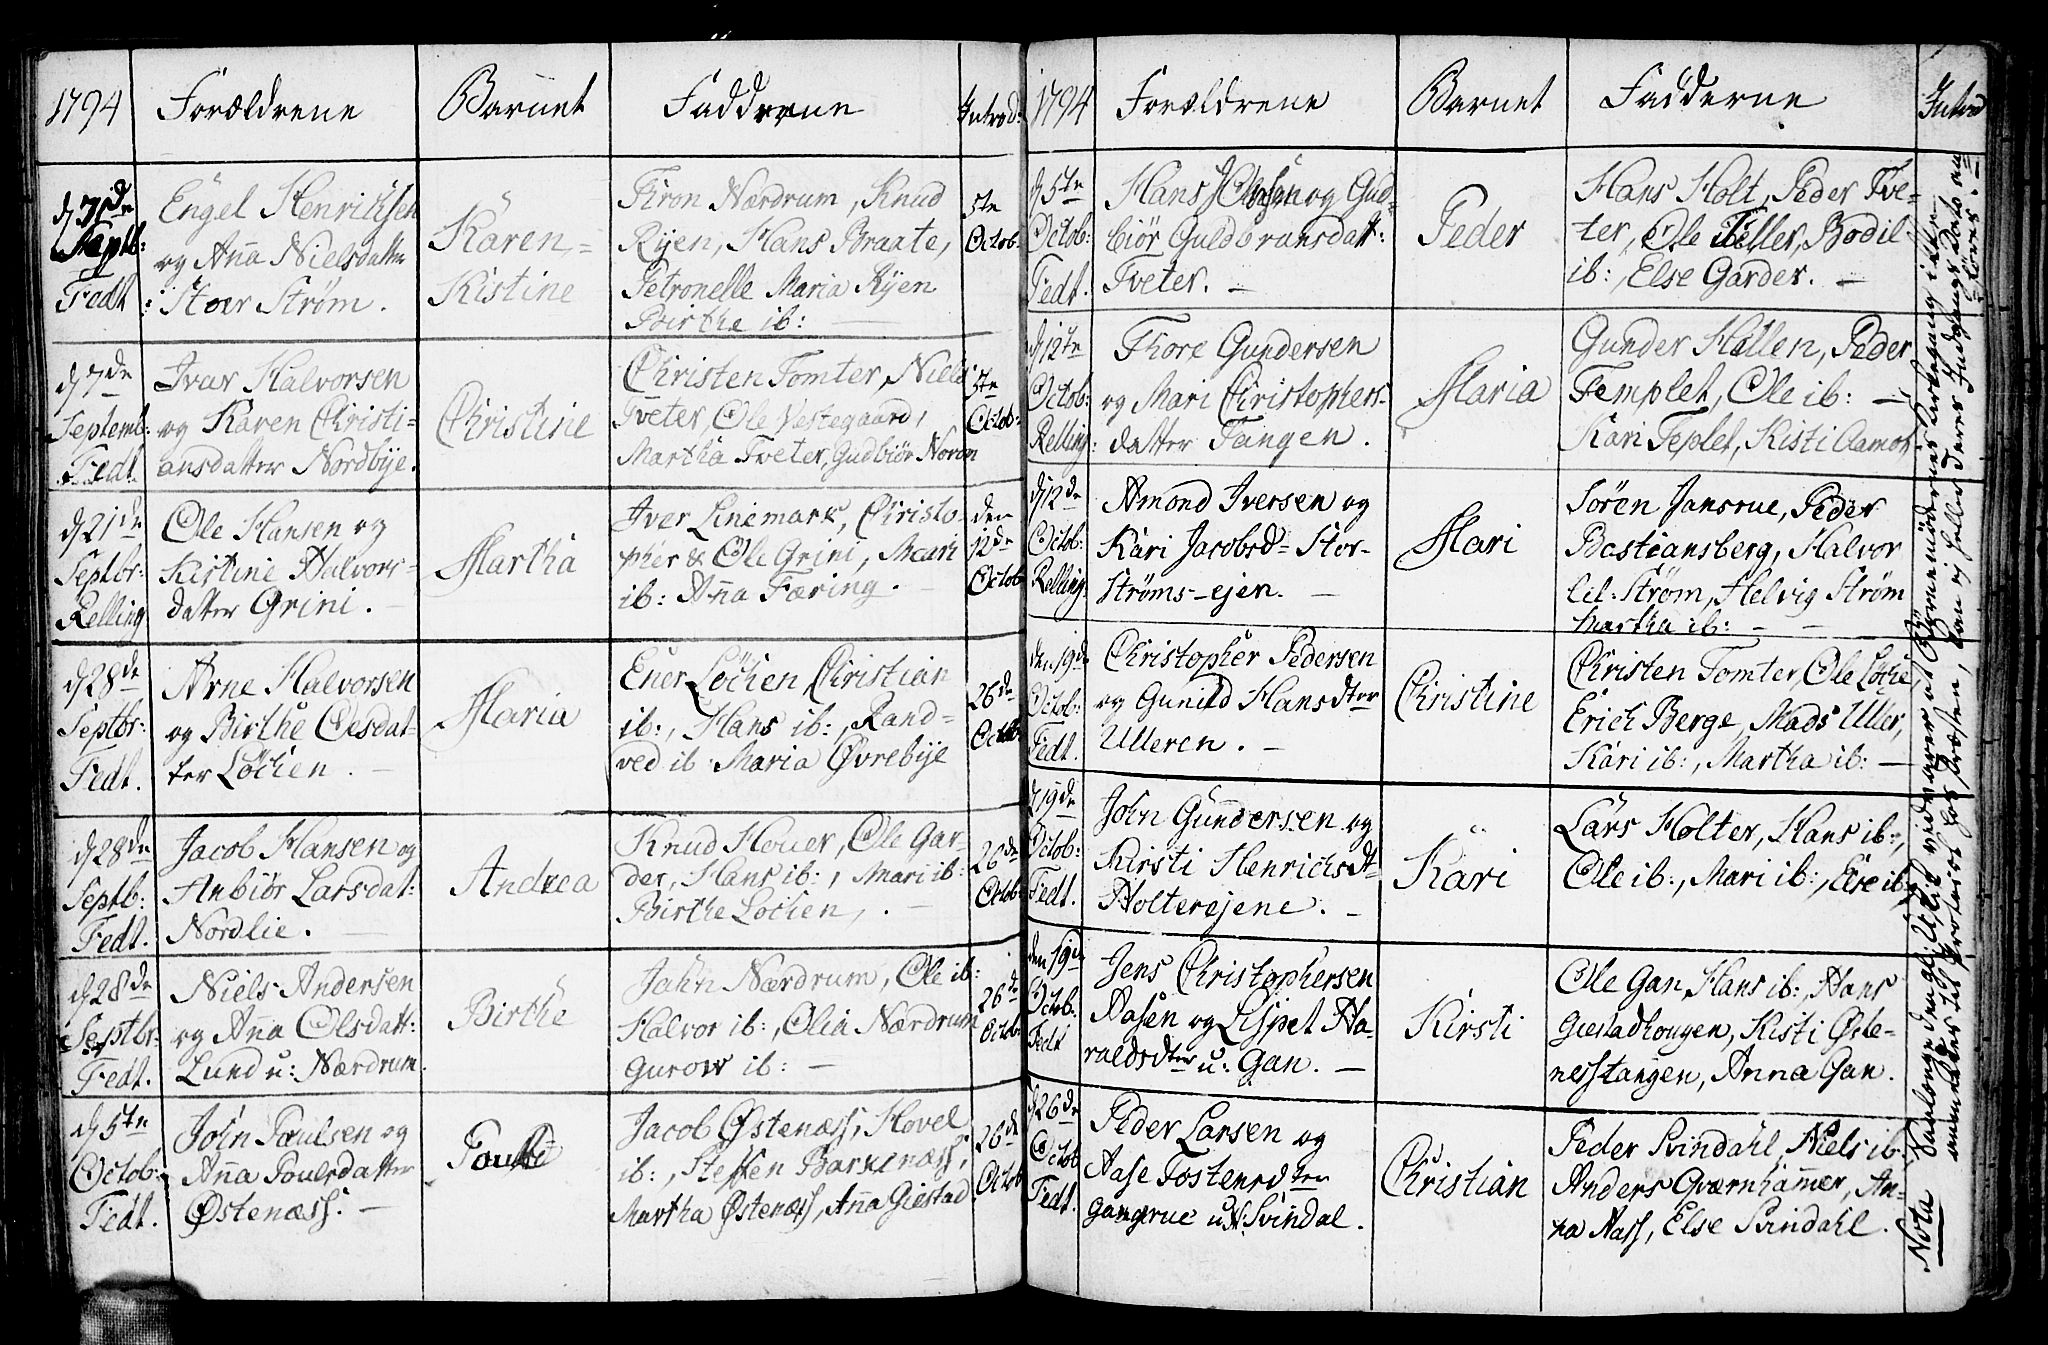 1794
Forældrene
Barnet
Fadderne
Introd:
d 7de
Septb:
Fedt
Engel Henrichsen
og Aña Nielsdatter
Stoer Strøm.
Karen-
Kistine
Tiron Nærdrum, Knud
Ryen, Hans Braate,
Petronelle Maria Ryen
Birthe ib:
5te
Octob:
d 7de
Septemb:
Fedt.
Ivar Halvorsen
og Karen Christi-
ansdatter Nordbye.
Christine
Christen Tomter, Niels
Tveter, Ole Vestegaard,
Martha Tveter, Gudbiør Noren
5te
Octob:
d 21de
Septbr:
Relling
Ole Hansen og
Kistine Halvors-
datter Grini.
Martha
Iver Linemark, Christo-
pher & Ole Grini, Mari
ib: Aña Færing.
den
12de
Octob
d 28de
Septbr:
Fedt.
Arne Halvorsen
og Birthe Olesdat-
ter Löchen.
Maria
Ener Löchen, Christian
ib:, Hans ib:, Rand-
ved ib: Maria Øvrebye
26de
Octob:
d 28de
Septb:
Fedt.
Jacob Hansen og
Anbiør Larsdat:
Nordlie.
Andrea
Knud Houer, Ole Gar-
der, Hans ib:, Mari ib:
Birthe Lochen,.
26de
Octob:
d 28de
Septbr:
Fedt.
Niels Andersen
og Aña Olsdatt:
Lund u: Nærdrum.
Birthe
Jahn Nærdrum, Ole ib:
Halvor ib:, Olia Nærdrum
Gurow ib:
26de
Octob:
d 5te
Octob:
Fedt.
John Paulsen og
Aña Poulsdatter
Østenæss.
Jacob Østenæss, Hovel
ib:, Steffen Barkenæss,
Martha Østenæss, Aña Giestad
26de
Octob
1794
Forældrene
Barnet
Fadderne
Introd
d 5te
Octob:
Fedt.
Hans Olsen og Gud-
biør Guldbransdatt:
Tveter.
Peder
Hans Holt, Peder Tve-
ter, Ole Teller, Bodil
ib:, Else Garder.
d 12te
Octob:
Relling:
Thore Gundersen
og Mari Christophers-
datter Tangen.
Maria
Gunder Hellen, Peder
Templet, Ole ib:
Kari Teplet, Kisti Aamot
d 12de
Octob:
Relling:
Amond Iversen og
Kari Jacobsd= Stor-
Strøms-ejen.
Mari
Søren Jansrue, Peder
Bastiansberg, Halvor
Lil: Strøm, Helvig Strøm
Martha ib:
den 19de
Octob:
Fedt.
Christopher Pedersen
og Gunild Hansdter
Ulleren.
Christine
Christen Tomter, Ole Löche,
Erich Berge, Mads Uller,
Kari ib:, Martha ib:
d 19de
Octob:
Fedt.
John Gundersen og
Kirsti Henrichsdt-
Holterejene.
Kari
Lars Holter, Hans ib:,
Ole ib:, Mari ib:, Else ib:
den 19de
Octob.
Fedt
Jens Christophersen
Aasen og Lispet Ha-
raldsdter u: Gan.
Kirsti
Ole Gan, Hans ib:, Hans
Giestadhougen, Kisti Øste-
nesstangen, Anna Gan.
d 26de
Octob
Fedt.
Peder Larsen og
Aase Tostensdter
Gangrue u N: Svindal.
Christian
Peder Svindahl, Niels ib:
Anders Qværnhamer, An-
na Nass, Else Svindahl.
Nota Saalænge den